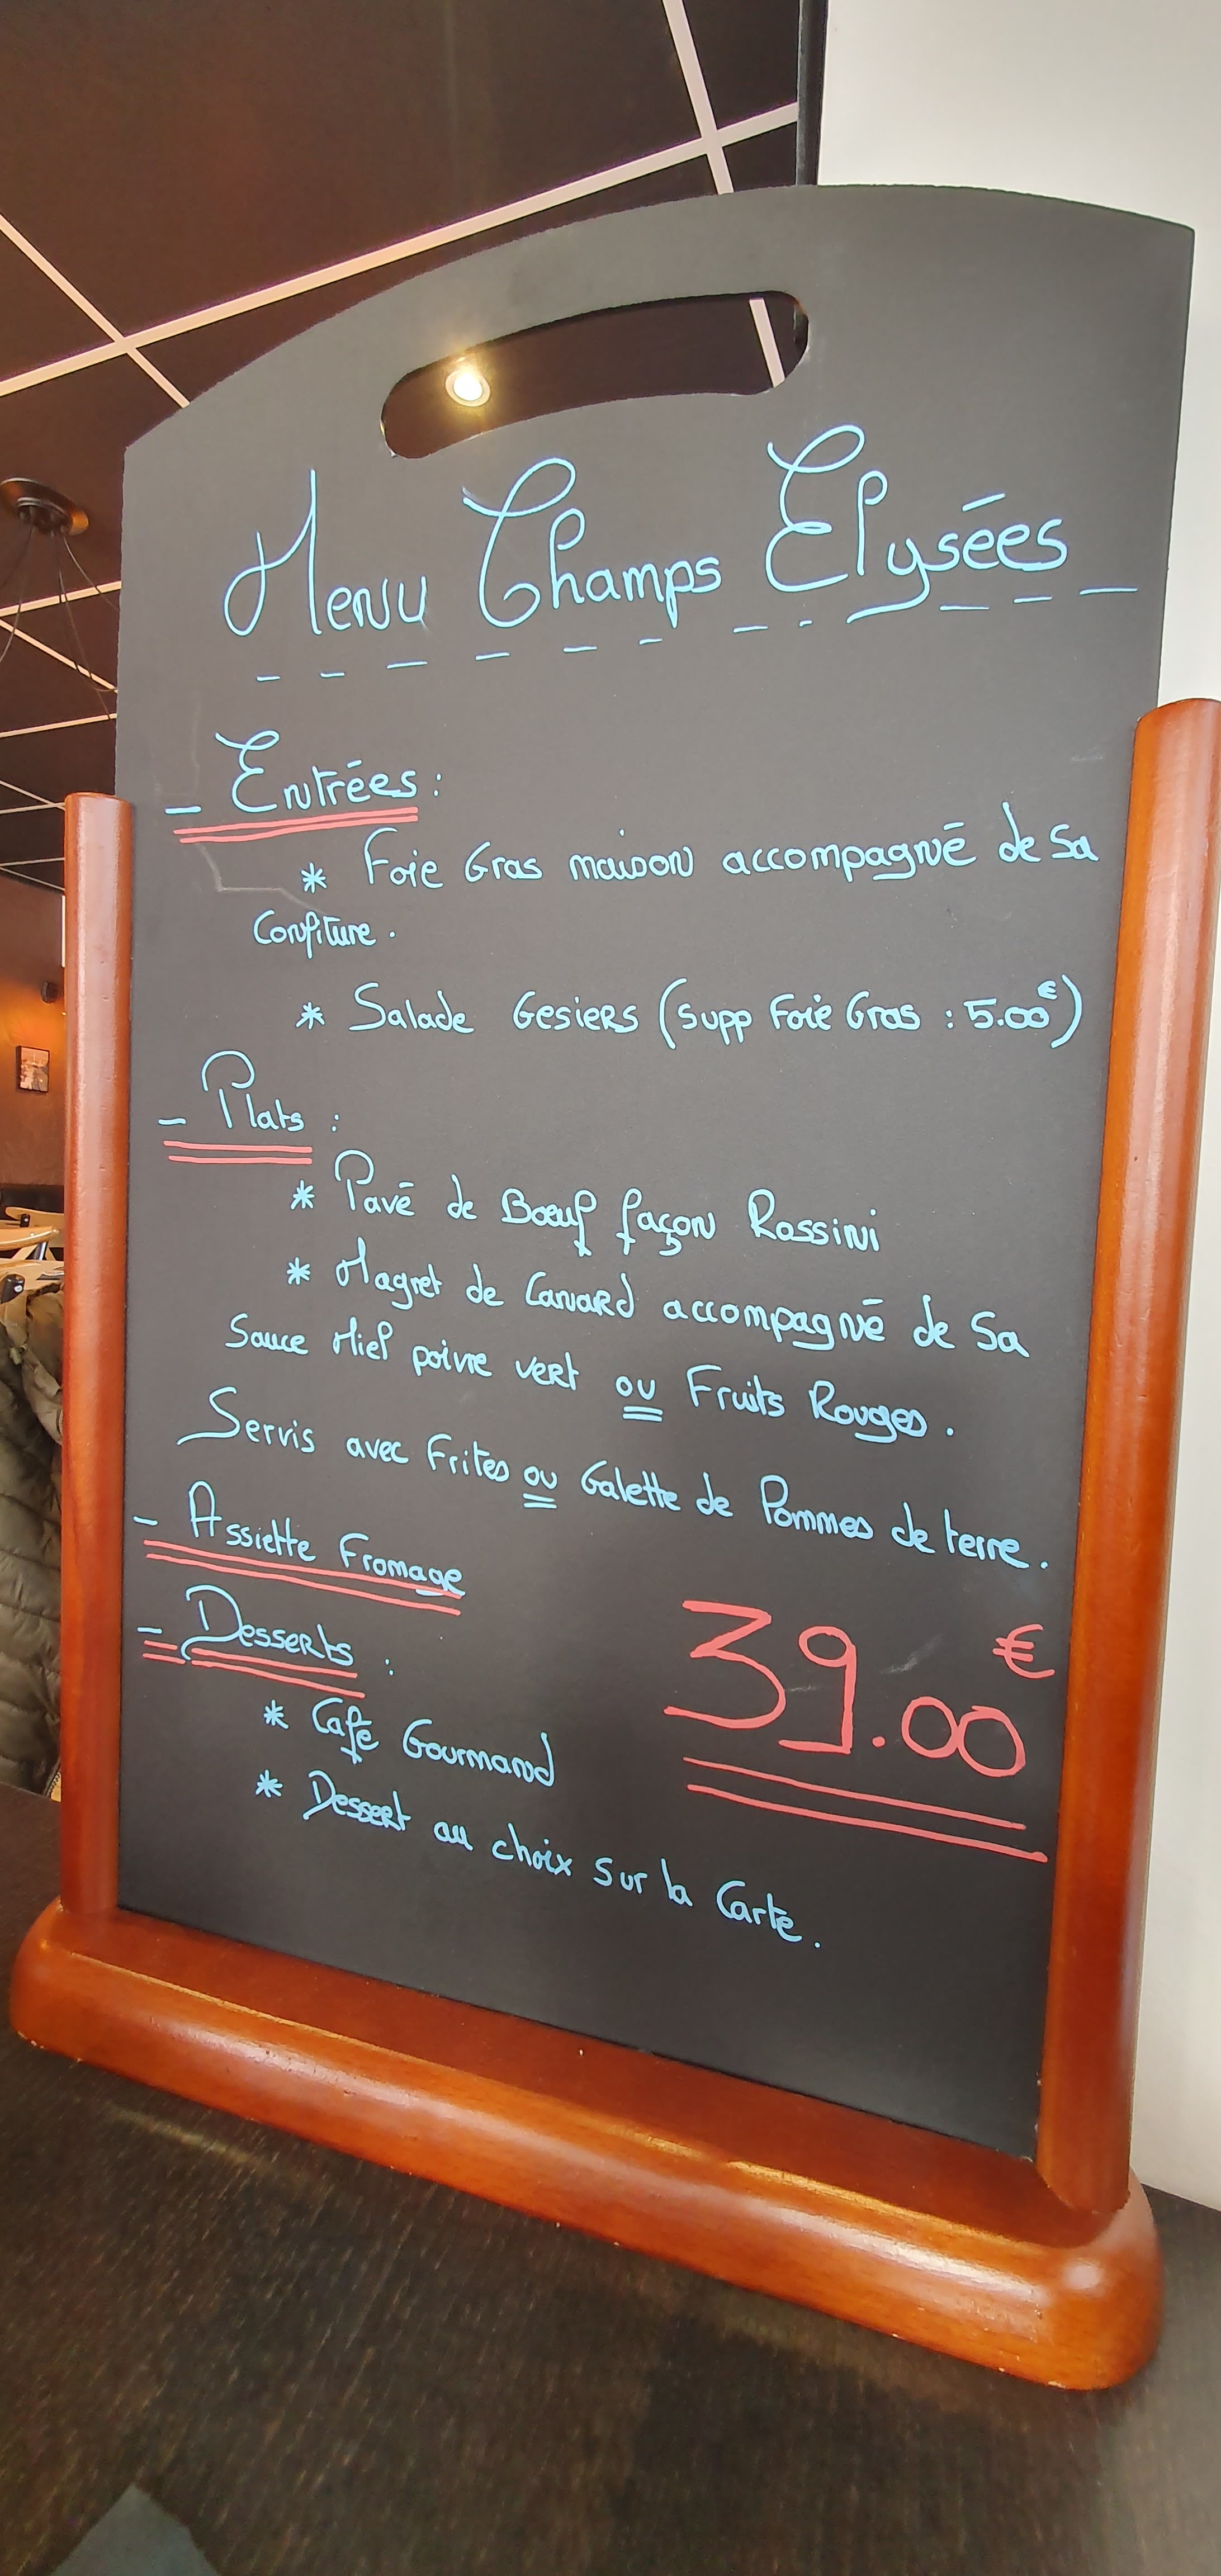 Menu Champs Elysées
- Entrées :
* Foie Gras maison accompagné de Sa
Confiture.
* Salade Gesiers (Supp Foie Gras : 5.00€)
- Plats :
* Pavé de Bœuf façon Rossini
* Magret de Canard accompagné de Sa
Sauce Miel poivre vert ou Fruits Rouges.
Servis avec Frites ou Galette de Pommes de terre.
- Assiette Fromage
- Desserts :
39.00€
* Café Gourmand
* Dessert au choix sur la Carte.